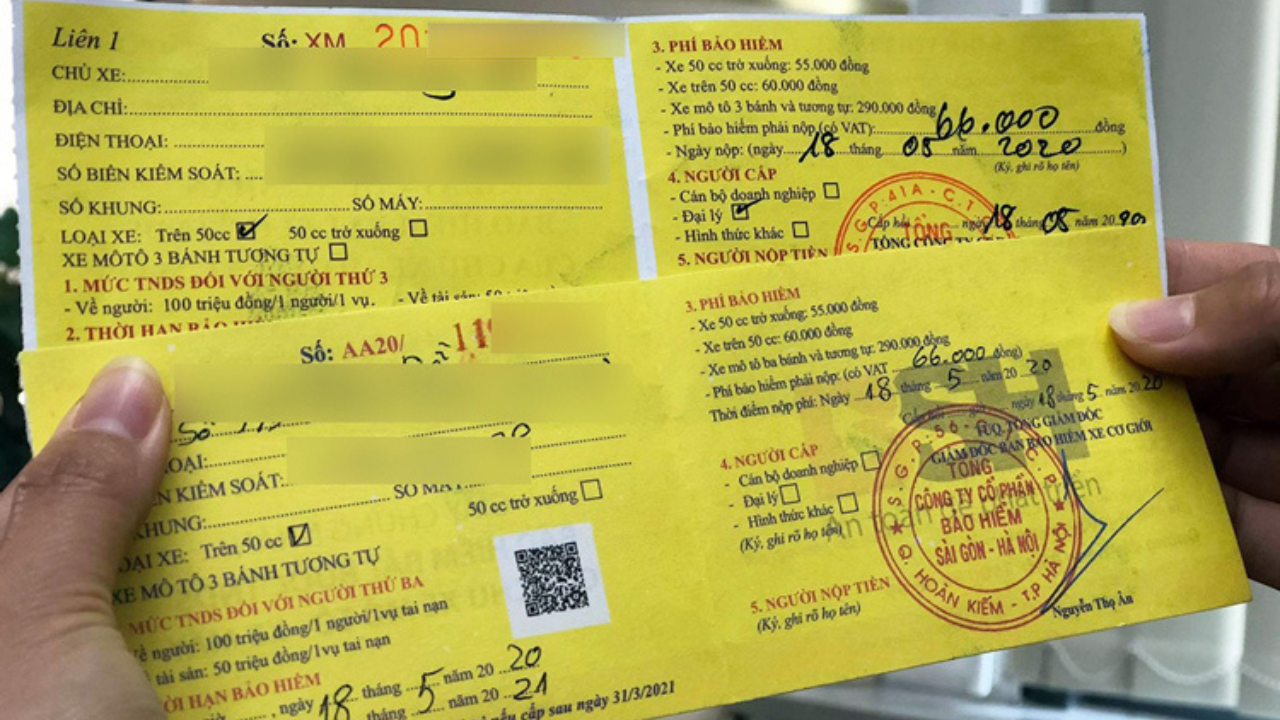 Liên 1
Số: XM 20
CHỦ XE:
ĐỊA CHỈ:
ĐIỆN THOẠI:
SỐ BIÊN KIỂM SOÁT: ....
SỐ KHUNG: SỐ MÁY:
LOẠI XE: Trên 50cc ☑ 50 cc trở xuống ☐
XE MÔTÔ 3 BÁNH TƯƠNG TỰ ☐
1. MỨC TNDS ĐỐI VỚI NGƯỜI THỨ 3
- Về người: 100 triệu đồng/1 người/1 vụ. - Về tài sản: 50
2. THỜI HẠN BẢO
3. PHÍ BẢO HIỂM
- Xe 50 cc trở xuống: 55.000 đồng
- Xe trên 50 cc: 60.000 đồng
- Xe mô tô 3 bánh và tương tự: 290.000 đồng
- Phí bảo hiểm phải nộp (có VAT): 66.000 đồng
- Ngày nộp: (ngày 18 tháng 05 năm 2020)
(Ký, ghi rõ họ tên)
4. NGƯỜI CẤP
- Cán bộ doanh nghiệp ☐
- Đại lý ☑
- Hình thức khác ☐
ngày 18 tháng 05 năm 20
TỔNG
5. NGƯỜI NỘP TIỀN
Số: AA20/ 119
OẠI:
KIỂM SOÁT:
KHUNG:
50 cc trở xuống ☐
OẠI XE: Trên 50 cc ☑
XE MÔ TÔ 3 BÁNH TƯƠNG TỰ
MỨC TNDS ĐỐI VỚI NGƯỜI THỨ BA
ề người: 100 triệu đồng/1 người/1vụ tai nạn
tài sản: 50 triệu đồng/1vụ tai nạn
ỜI HẠN BẢO HIỂM
, ngày 18 tháng 5 năm 20 20
tháng 5 năm 20 21
nếu cấp sau ngày 31/3/2021
3. PHÍ BẢO HIỂM
- Xe 50 cc trở xuống: 55.000 đồng
- Xe trên 50 cc: 60.000 đồng
- Xe mô tô ba bánh và tương tự: 290.000 đồng
- Phí bảo hiểm phải nộp: (có VAT 66.000 đồng)
Thời điểm nộp phí: Ngày 18 tháng 5 năm 20 20
ngày 18 tháng 5 năm 20 20
TUQ. TỔNG GIÁM ĐỐC
GIÁM ĐỐC BAN BẢO HIỂM XE CƠ GIỚI
4. NGƯỜI CẤP
- Cán bộ doanh nghiệp ☐
- Đại lý ☐
- Hình thức khác ☐
(Ký, ghi rõ họ tên)
An toàn để phát triển
TỔNG
CÔNG TY CỔ PHẦN
BẢO HIỂM
SÀI GÒN - HÀ NỘI
Q. HOÀN KIẾM - T.P HÀ NỘI
5. NGƯỜI NỘP TIỀN
(Ký, ghi rõ họ tên)
Nguyễn Thọ Ân